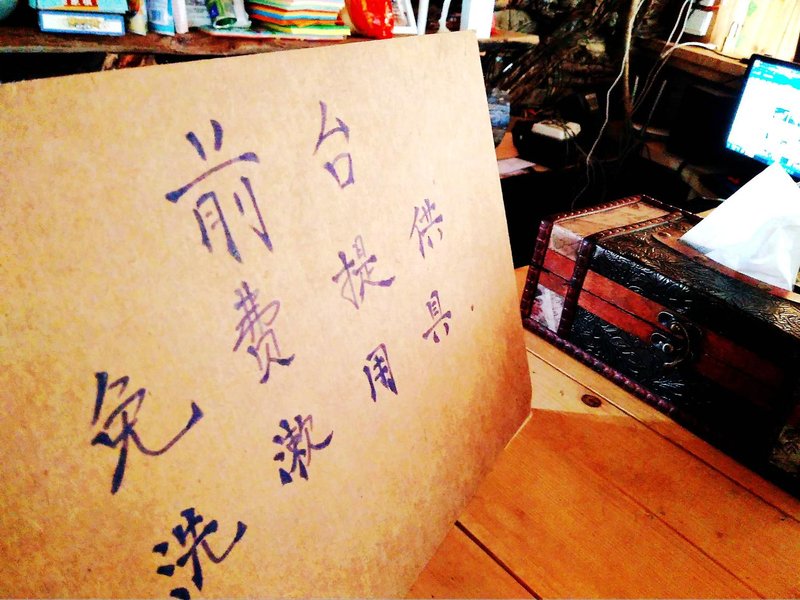 前台
免费提供
洗漱用具.